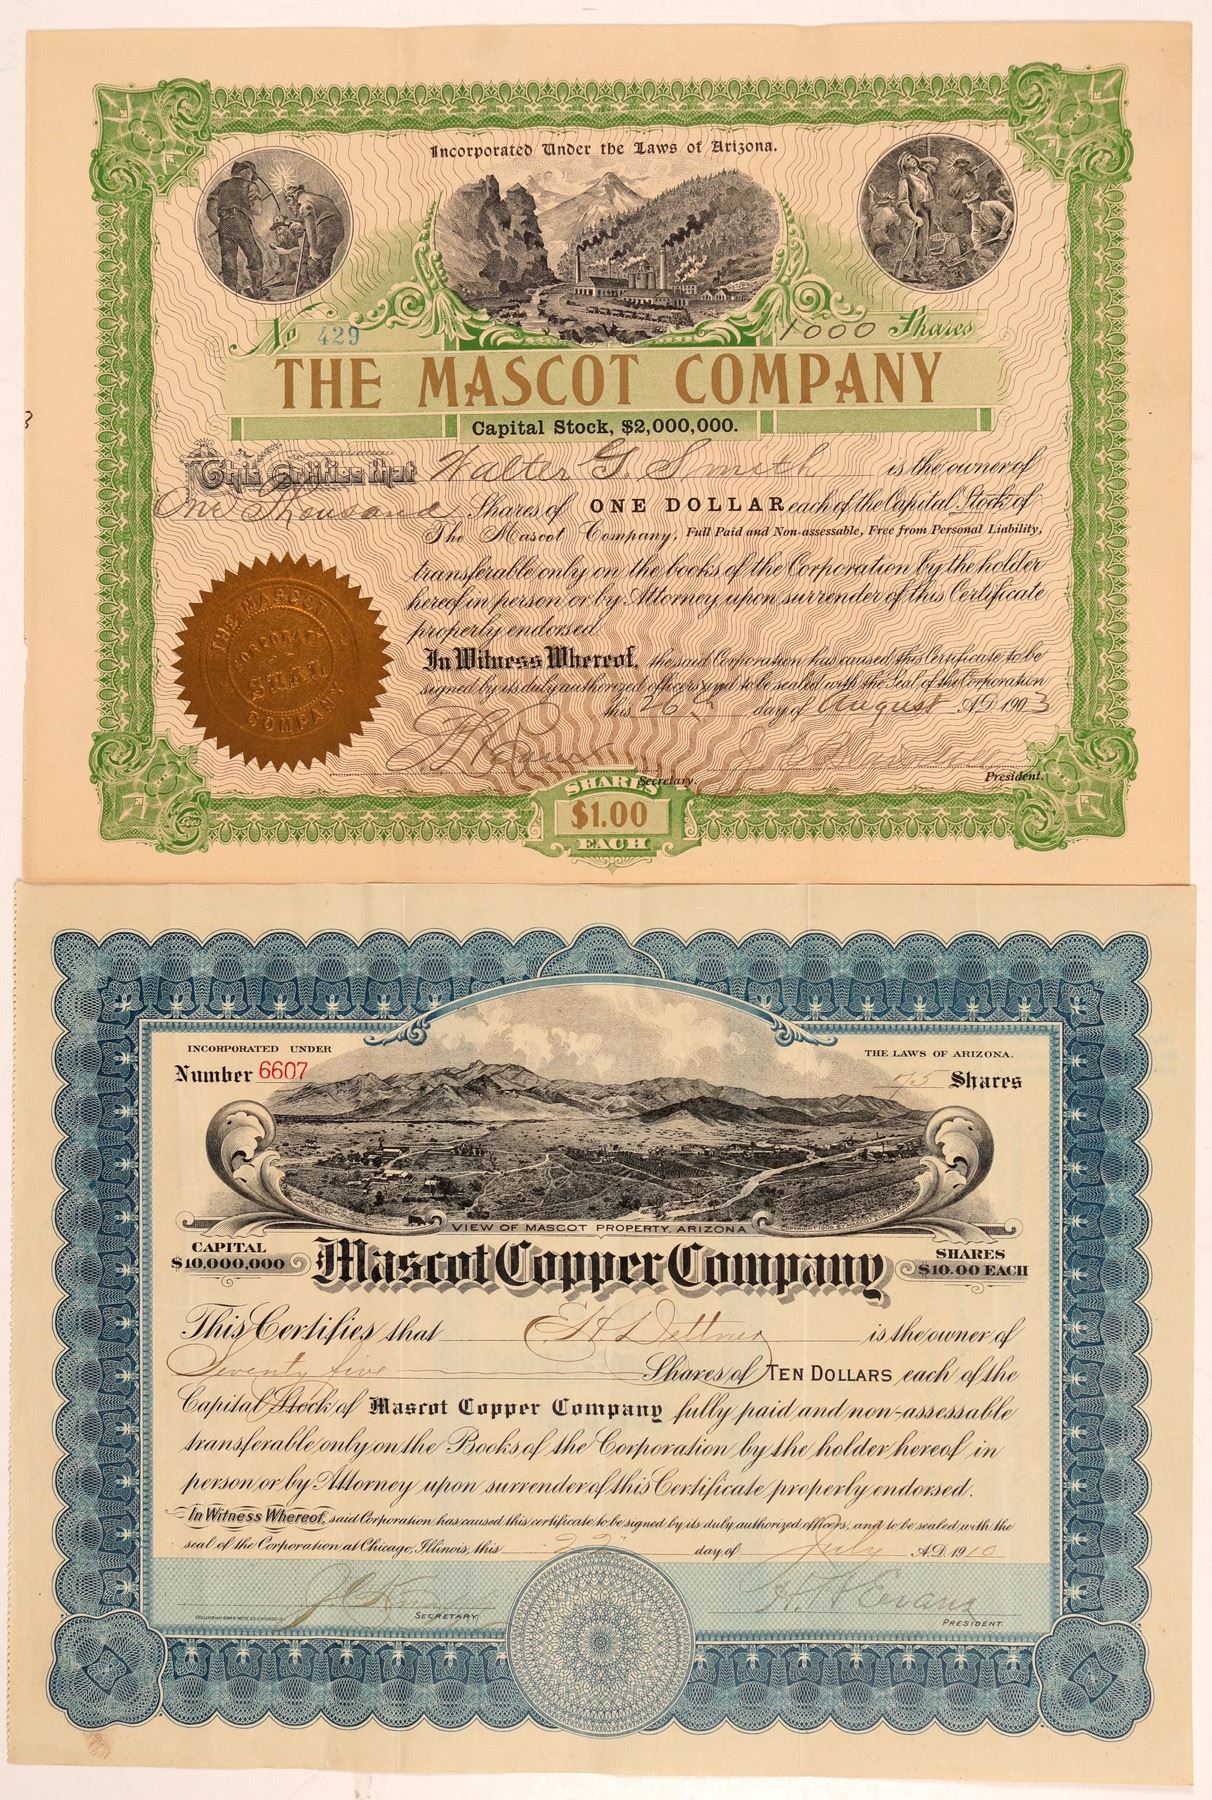 Incorporated Under the Laws of Arizona.
No 429
1000 Shares
THE MASCOT COMPANY
Capital Stock, $2,000,000.
This Certifies that Walter G. Smith is the owner of
One Thousand Shares of ONE DOLLAR each of the Capital Stock of
The Mascot Company, Full Paid and Non-assessable, Free from Personal Liability,
transferable only on the books of the Corporation by the holder
hereof in person or by Attorney upon surrender of this Certificate
properly endorsed.
In Witness Whereof, the said Corporation has caused this Certificate to be
signed by its duly authorized officers and to be sealed with the Seal of the Corporation
this 26th day of August A.D. 1903
THE MASCOT COMPANY
CORPORATE
SEAL
Secretary.
President.
SHARES
$1.00
EACH
INCORPORATED UNDER
THE LAWS OF ARIZONA.
Number 6607
75 Shares
VIEW OF MASCOT PROPERTY, ARIZONA
CAPITAL
$10,000,000
Mascot Copper Company
SHARES
$10.00 EACH
This Certifies that E H Dettmer is the owner of
Seventy five Shares of TEN DOLLARS each of the
Capital Stock of Mascot Copper Company fully paid and non-assessable
transferable only on the Books of the Corporation by the holder hereof in
person or by Attorney upon surrender of this Certificate properly endorsed.
In Witness Whereof, said Corporation has caused this certificate to be signed by its duly authorized officers, and to be sealed with the
seal of the Corporation at Chicago, Illinois, this 22 day of July A.D. 1910
Evans
COLUMBIAN BANK NOTE CO. CHICAGO
SECRETARY.
PRESIDENT.